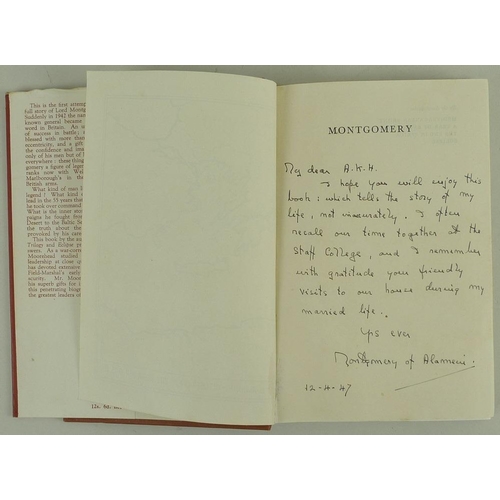 This is the first attem
full story of Lord Montg
Suddenly in 1942 the nam
known general became
word in Britain. An
of success in battle;
blended with more than
eccentricity, and a gift
the confidence and
only of his men but of
everywhere: these thing
gomery a figure of legen
ranks now with Wel
Marlborough's in the
British army.
What kind of man
legend? What kind of
lead in the 55 years that
he took over command
What is the inner stor
paigns he fought from
Desert to the Baltic
the truth about the
provoked by his
This book by the
Trilogy and Eclipse
swers. As a war-corr
Moorehead studied
leadership at close
has devoted extensive
Field-Marshal's early
scurity. Mr. Moo
his superb gifts for
this penetrating biogr
the greatest leaders of
12s. 6d.
MONTGOMERY
My dear A.K.H.
I hope you will enjoy this
book: which tells the story of my
life, not inaccurately. I often
recall our time together at the
Staff College, and I remember
with gratitude your friendly
visits to our house during my
married life.
Yrs ever
Montgomery of Alamein.
12-4-47